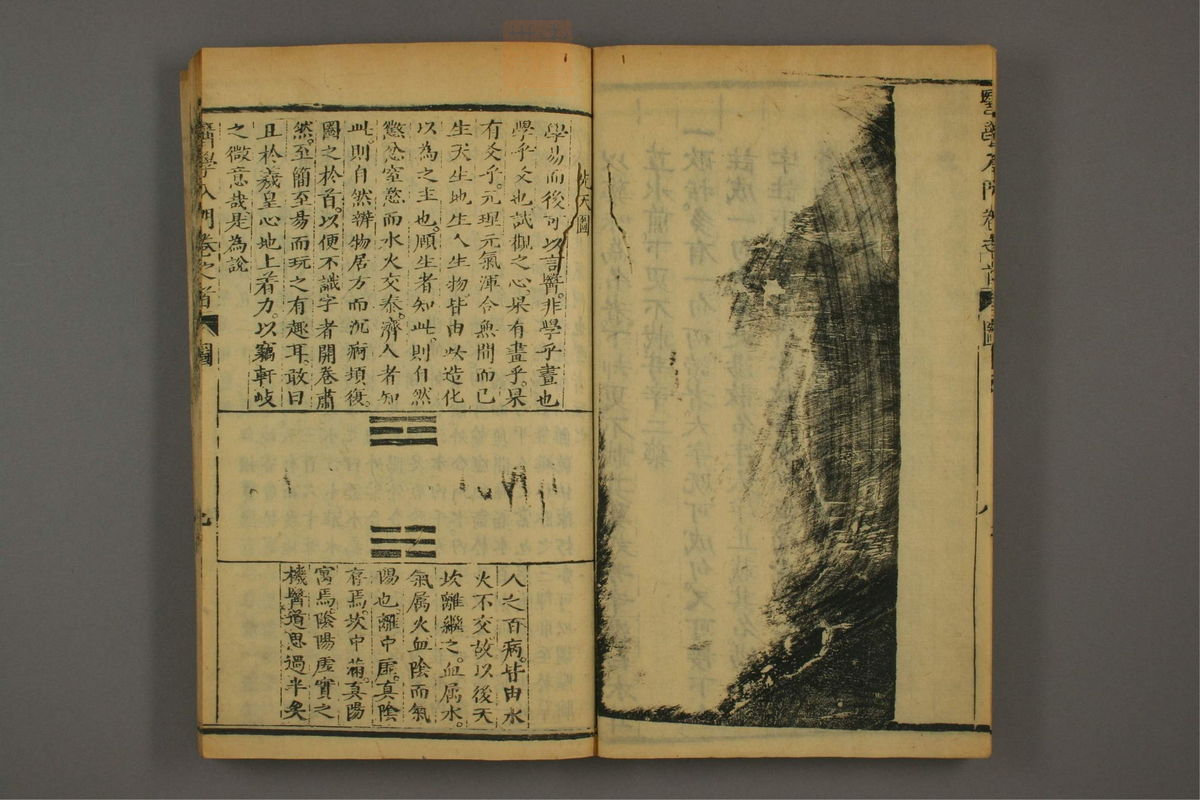 先天圖
學易而後可以言醫非學乎畫也
學乎爻也試觀之心果有畫乎果
有爻乎元理元氣渾合無間而已
生天生地生人生物皆由此造化
以為之主也頤生者知此則自然
懲忿窒慾而水火交泰濟人者知
此則自然辨物居方而沉痾頃復
圖之於首以便不識字者開卷肅
然至簡至易而玩之有趣耳敢曰
且於羲皇心地上着力以竊軒岐
之微意哉是為說
人之百病皆由水
火不交故以後天
坎離繼之血属水
氣属火血陰而氣
陽也離中虛真陰
存焉坎中滿真陽
寓焉陰陽虛實之
機醫道思過半矣
醫學入門卷之首
圖
九